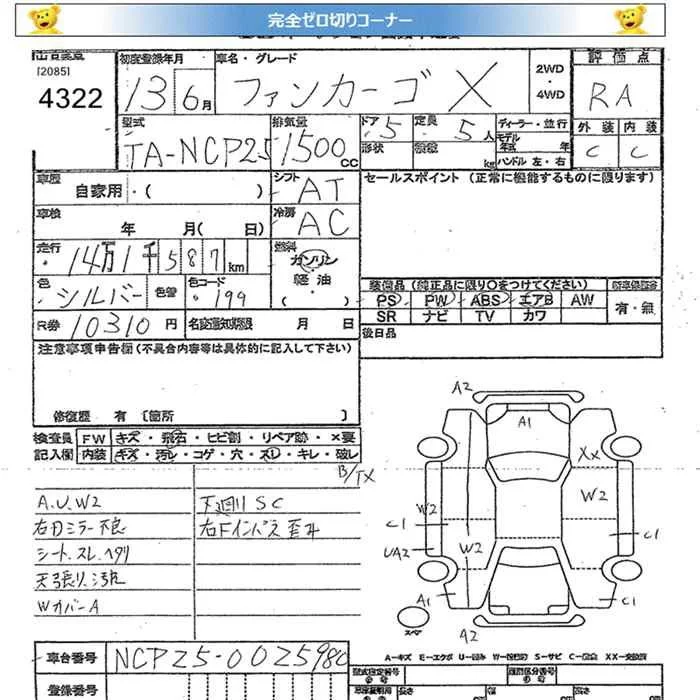 完全ゼロ切りコーナー
[2085]
4322
初度登録年月
13 6月
車名・グレード
ファンカーゴ X
2WD
・
4WD
評価点
RA
外装 内装
C C
型式
TA-NCP25
排気量
1500 CC
ドア 5
形状
定員 5人
積載 kg
ディーラー・並行
モデル年式 年
ハンドル 左・右
車歴
自家用・( )
シフト
AT
セールスポイント (正常に機能するものに限ります)
車検
年 月( 日)
冷房
AC
走行
14万1千587km
燃料
ガソリン
軽油
・( )
色
・シルバー
色替
色コード
・199
装備品 (純正品に限り○をつけてください)
PS PW ABS エアB AW
SR ナビ TV カワ
有・無
R券 10310円
名変通知期限 月 日
後日品
注意事項申告欄(不具合内容等は具体的に記入して下さい)
修復歴 有 〔箇所 〕
検査員
記入欄
FW キズ・飛石・ヒビ割・リペア跡・×要
内装 キズ・汚レ・コゲ・穴・スレ・キレ・破レ
B/TX
A.U.W2
右Dミラー不良
シート.スレ.ヘタリ
天張り.
Wカバー A
下廻り SC
右Fインパネ歪み
A2
A1
XX
W2
W2
C1
C1
UA2
W2
A1
C1
スペア
A2
A-キズ E-エクボ U-凹み W-波修跡 S-サビ C-腐食 XX-交換済
車台番号 NCP25-0025980
登録番号
型式指定番号
類別区分番号
長さ